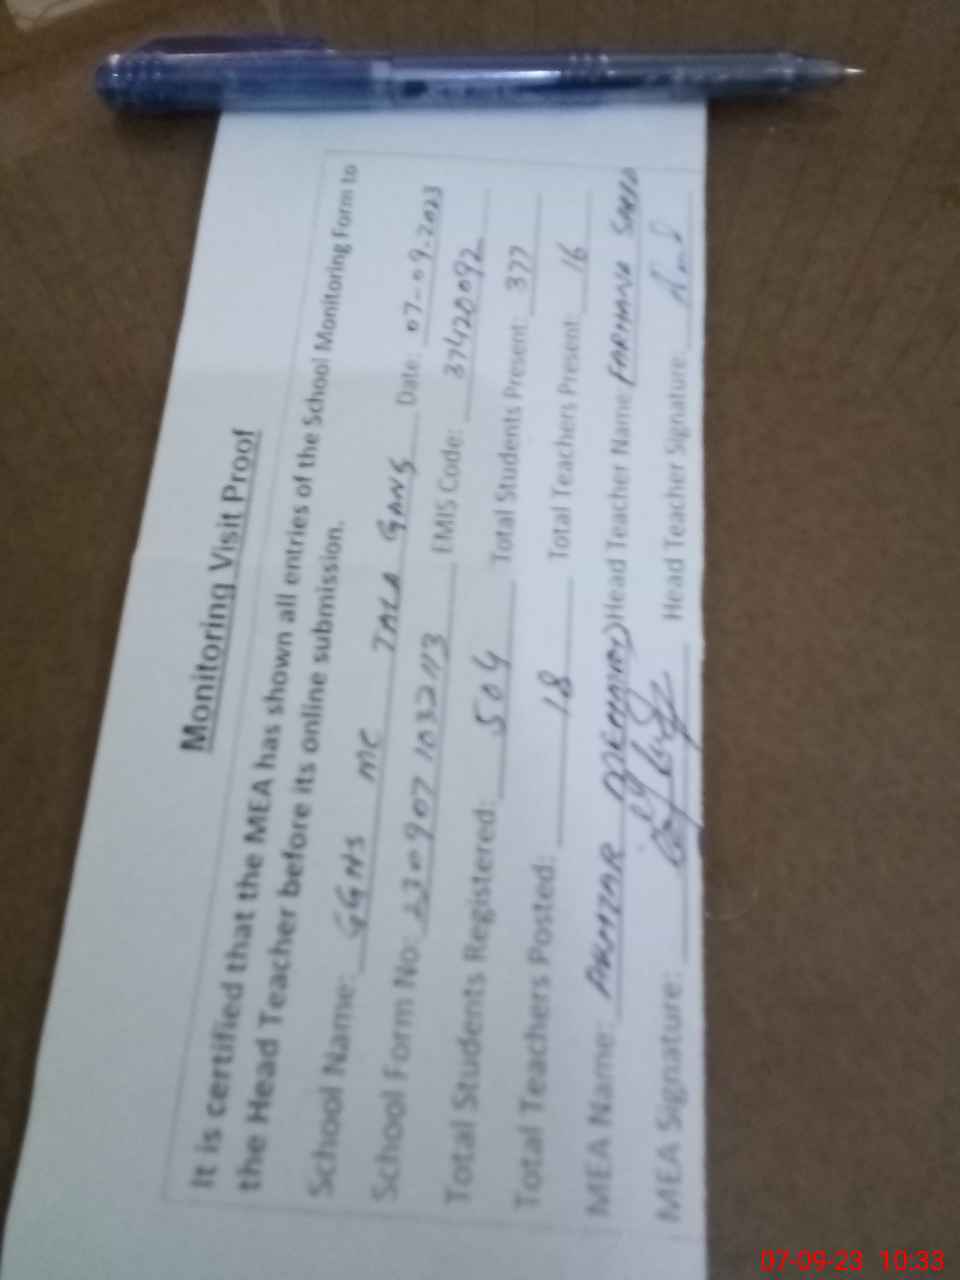 Monitoring Visit Proof
It is certified that the MEA has shown all entries of the School Monitoring Form to
the Head Teacher before its online submission.
School Name: GGHS MC TALA GANG Date: 07-09-2023
School Form No: 230907 1032113 EMIS Code: 37420092
Total Students Registered: 504 Total Students Present: 377
Total Teachers Posted: 18 Total Teachers Present: 16
MEA Name: Head Teacher Name: FARHANA
MEA Signature: Head Teacher Signature:
07-09-23 10:33